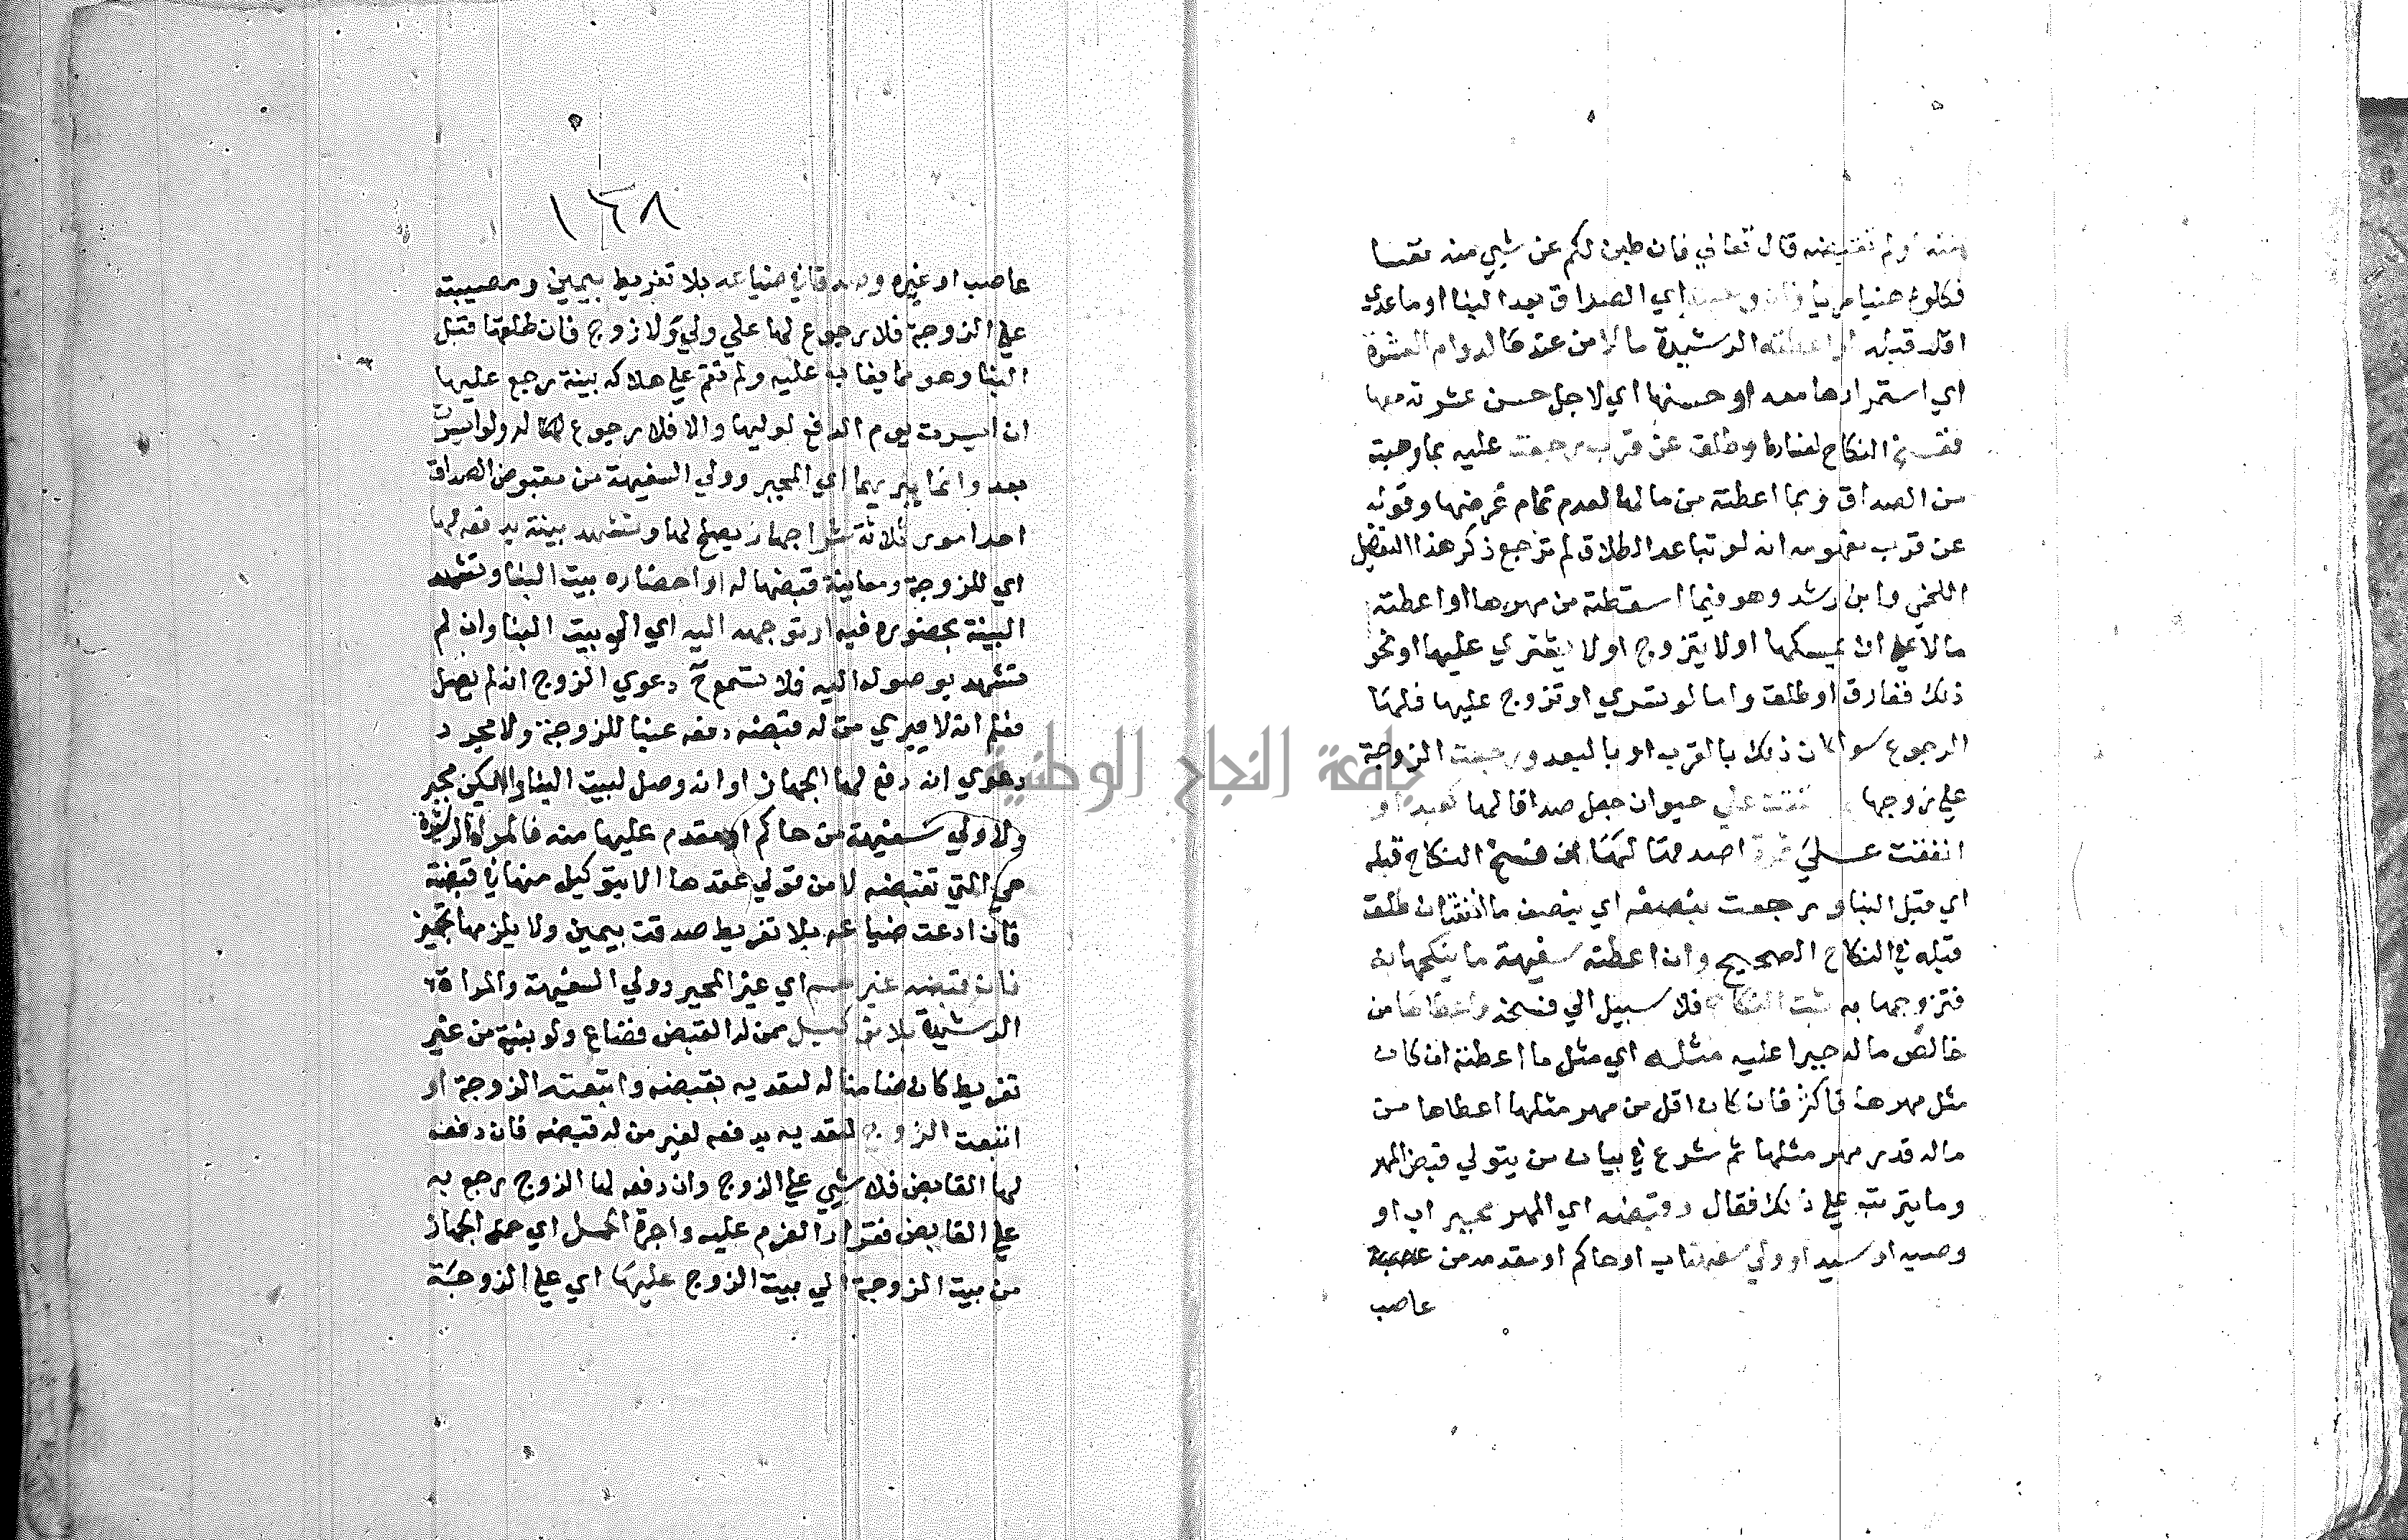 منه او لم تقبضه قال تعالي فان طبن لكم عن شيي منه نفسا
فكلوه هنيا مريا وان وهبت اي الصداق بعد البنا او ما عدي
اقله قبله او اعطته الرشيدة مالا من عندها لدوام العشرة
اي استمرارها معه او حسنها اي لاجل حسن عشرته معها
ففسخ النكاح لفساده وطلق عن قرب رجعت عليه بما وهبته
من الصداق وبما اعطته من مالها لعدم تمام غرضها وقوله
عن قرب مفهومه انه لو تباعد الطلاق لم ترجع ذكر هذا التفصيل
اللخمي وابن رشد وهو فيما اسقطته من مهرها او اعطته
مالا علي ان يمسكها او لا يتزوج او لا يتسري عليها او نحو
ذلك ففارق او طلق واما لو تسري او تزوج عليها فلها
الرجوع سوا كان ذلك بالقرب او بالبعد ورجعت الزوجة
علي زوجها بما انفقت علي حيوان جعل صداقا لها كعبد او
انفقت علي ثمرة اصدقها لها ان فسخ النكاح قبله
اي قبل البنا ورجعت بنصفه اي بنصف ما انفقت ان طلق
قبله في النكاح الصحيح وان اعطته سفيهة ما ينكحها به
فتزوجها به ثبت النكاح فلا سبيل الي فسخه واعطاها من
خالص ماله جبرا عليه مثله اي مثل ما اعطته ان كان
مثل مهرها فاكثر فان كان اقل من مهر مثلها اعطاها من
ماله قدر مهر مثلها ثم شرع في بيان من يتولي قبض المهر
وما يترتب علي ذلك فقال وقبضه اي المهر مجبر اب او
وصيه او سيد او ولي سفيهة اب او حاكم او مقدمه من عصبة
عاصب
١٦٨
عاصب او غيره وصدقا في ضياعه بلا تفريط بيمين ومصيبته
علي الزوجة فلا رجوع لها علي ولي ولا زوج فان طلقها قبل
البنا وهو مما يغاب عليه ولم تقم علي هلاكه بينة رجع عليها
ان ايسرت يوم الدفع لوليها والا فلا رجوع له ولو ايسرت
بعد وانما يبريهما اي المجبر وولي السفيهة من مقبوض الصداق
احد امور ثلاثة شرا جهاز يصلح لها وتشهد بينة بدفعه لها
اي للزوجة ومعاينة قبضها له او احضاره بيت البنا وتشهد
البينة بحضوره فيه او توجهه اليه اي الي بيت البنا وان لم
تشهد بوصوله اليه فلا تسمع دعوي الزوج انه لم يصل
فعلم انه لا يبري من له قبضه دفعه عينا للزوجة ولا مجرد
دعوي انه دفع لها الجهاز او انه وصل لبيت البنا وان لم يكن مجبر
ولا ولي سفيهة من حاكم او مقدم عليها منه فالمراة الرشيدة
هي التي تقبضه لا من تولي عقدها الا بتوكيل منها في قبضه
فان ادعت ضياعه بلا تفريط صدقت بيمين ولا يلزمها تجهيز
فان قبضه غيرهم اي غير المجبر وولي السفيهة والمراة
الرشيدة بلا توكيل ممن له القبض فضاع ولو ببينة من غير
تفريط كان ضامنا له لتعديه بقبضه واتبعته الزوجة او
اتبعت الزوج لتعديه بدفعه لغير من له قبضه فان دفعه
لها القابض فلا شيي علي الزوج وان دفعه لها الزوج رجع به
علي القابض فقرار الغرم عليه واجرة الحمل اي حمل الجهاز
من بيت الزوجة الي بيت الزوج عليها اي علي الزوجة